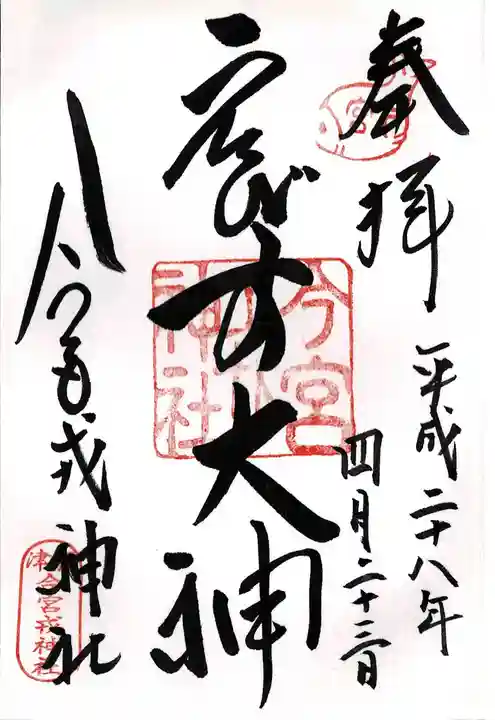 奉拝
平成二十八年
四月二十三日
大神
今宮戎神社
今宮
神社
今宮戎神社